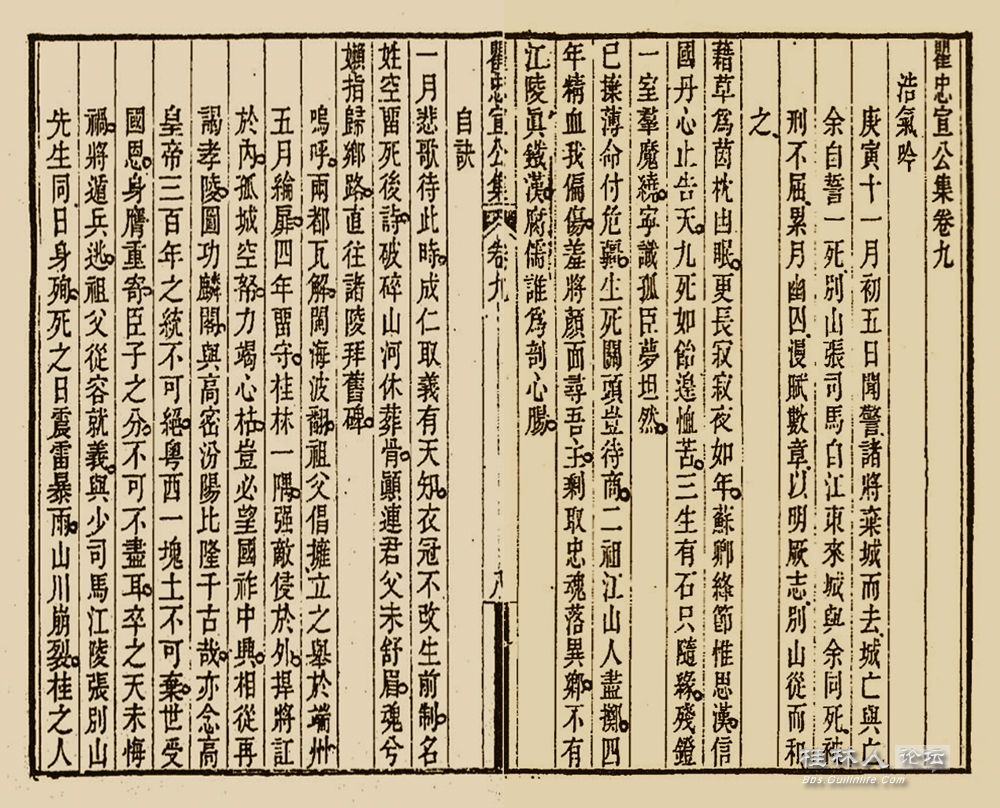 瞿忠宣公集卷九
浩氣吟
庚寅十一月初五日聞警諸將棄城而去城亡與亡
余自誓一死別山張司馬自江東來城與余同死被
刑不屈累月幽囚漫賦數章以明厥志別山從而和
之
藉草爲茵枕凷眠更長寂寂夜如年蘇卿絳節惟思漢信
國丹心止告天九死如飴遑恤苦三生有石只隨緣殘鐙
一室羣魔繞寧識孤臣夢坦然
已拚薄命付危疆生死關頭豈待商二祖江山人盡擲四
年精血我偏傷羞將顏面尋吾主剩取忠魂落異鄉不有
江陵眞鐵漢腐儒誰爲剖心腸
瞿忠宣公集 卷九 八
自訣
一月悲歌待此時成仁取義有天知衣冠不改生前制名
姓空留死後詩破碎山河休葬骨顚連君父未舒眉魂兮
嬾指歸鄉路直往諸陵拜舊碑
嗚呼兩都瓦解閩海波翻祖父倡擁立之舉於端州
五月綸扉四年留守桂林一隅强敵侵於外捍將訌
於內孤城空帑力竭心枯豈必望國祚中興相從再
謁孝陵圖功麟閣與高密汾陽比隆千古哉亦念高
皇帝三百年之統不可絕粵西一塊土不可棄世受
國恩身膺重寄臣子之分不可不盡耳卒之天未悔
禍將遁兵逃祖父從容就義與少司馬江陵張別山
先生同日身殉死之日震雷暴雨山川崩裂桂之人
桂林人论坛
Bbs.Guilinlife.Com